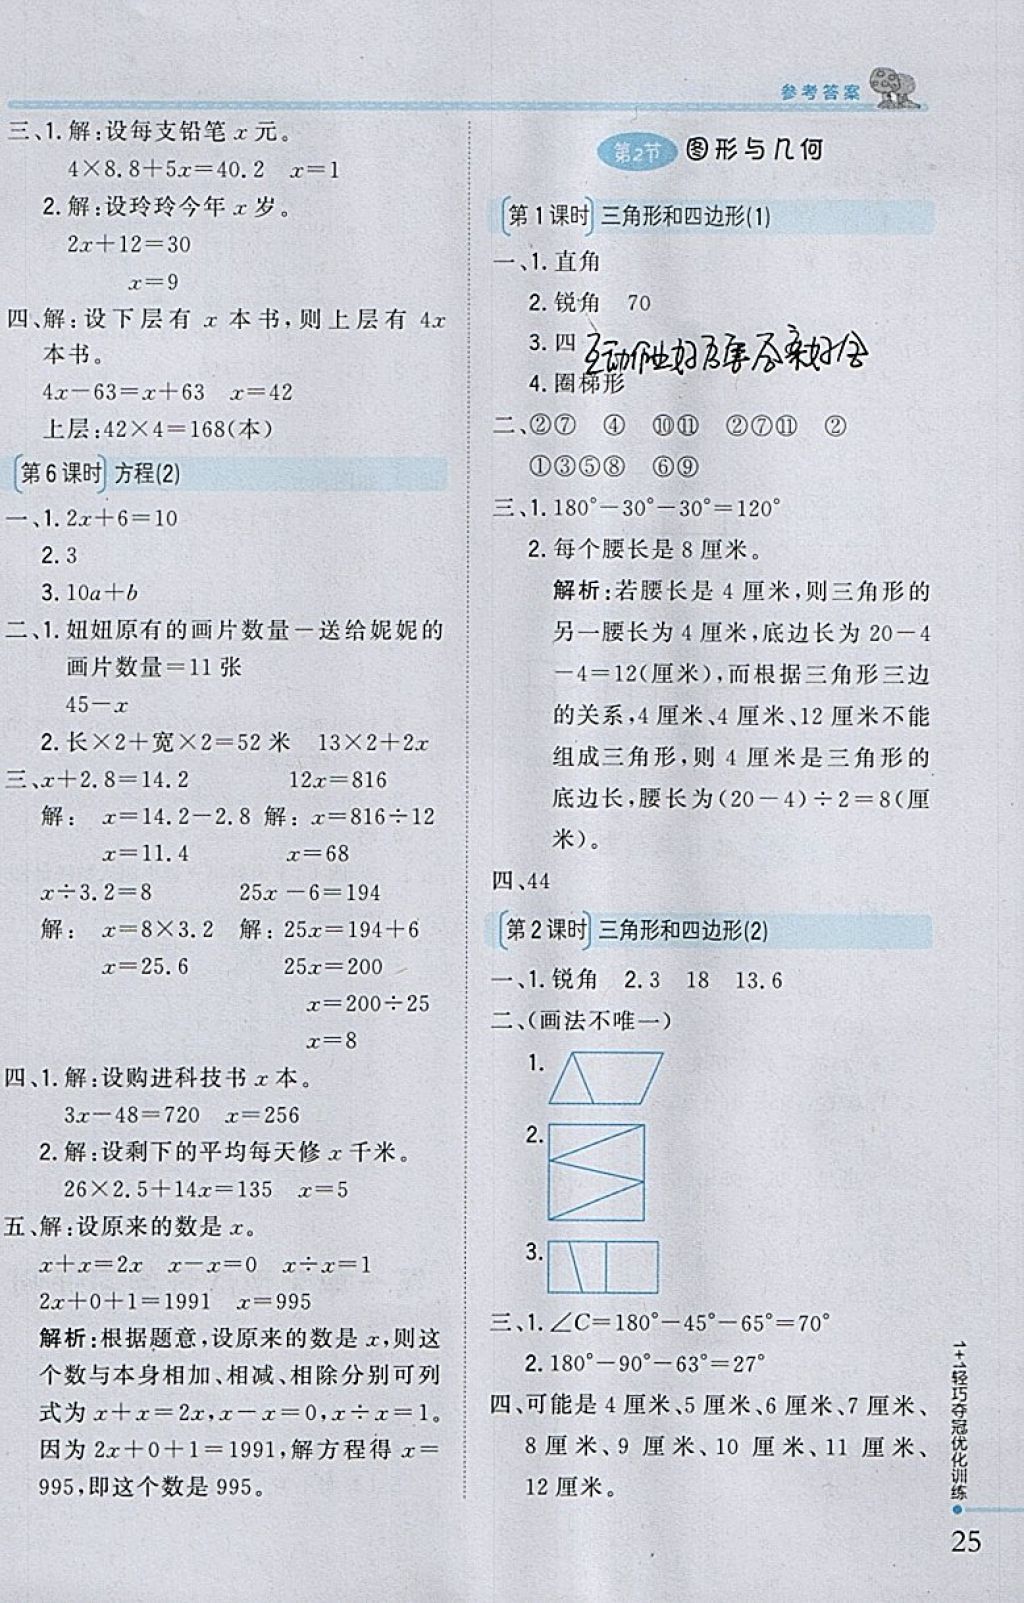 参考答案
三、1.解:设每支铅笔 x 元。
4×8.8+5x=40.2 x=1
2.解:设玲玲今年 x 岁。
2x+12=30
x=9
四、解:设下层有 x 本书,则上层有 4x
本书。
4x-63=x+63 x=42
上层:42×4=168(本)
第6课时 方程(2)
一、1.2x+6=10
2.3
3.10a+b
二、1.妞妞原有的画片数量-送给妮妮的
画片数量=11张
45-x
2.长×2+宽×2=52米 13×2+2x
三、x+2.8=14.2 12x=816
解: x=14.2-2.8 解: x=816÷12
x=11.4 x=68
x÷3.2=8 25x-6=194
解: x=8×3.2 解: 25x=194+6
x=25.6 25x=200
x=200÷25
x=8
四、1.解:设购进科技书 x 本。
3x-48=720 x=256
2.解:设剩下的平均每天修 x 千米。
26×2.5+14x=135 x=5
五、解:设原来的数是 x。
x+x=2x x-x=0 x÷x=1
2x+0+1=1991 x=995
解析:根据题意,设原来的数是 x,则这
个数与本身相加、相减、相除分别可列
式为 x+x=2x,x-x=0,x÷x=1。
因为 2x+0+1=1991,解方程得 x=
995,即这个数是 995。
第2节 图形与几何
第1课时 三角形和四边形(1)
一、1.直角
2.锐角 70
3.四
4.圈梯形
二、②⑦ ④ ⑩⑪ ②⑦⑪ ②
①③⑤⑧ ⑥⑨
三、1.180°-30°-30°=120°
2.每个腰长是 8 厘米。
解析:若腰长是 4 厘米,则三角形的
另一腰长为 4 厘米,底边长为 20-4
-4=12(厘米),而根据三角形三边
的关系,4 厘米、4 厘米、12 厘米不能
组成三角形,则 4 厘米是三角形的
底边长,腰长为(20-4)÷2=8(厘
米)。
四、44
第2课时 三角形和四边形(2)
一、1.锐角 2.3 18 13.6
二、(画法不唯一)
1.
2.
3.
三、1.∠C=180°-45°-65°=70°
2.180°-90°-63°=27°
四、可能是 4 厘米、5 厘米、6 厘米、7 厘米、
8 厘米、9 厘米、10 厘米、11 厘米、
12 厘米。
1+1轻巧夺冠优化训练
25